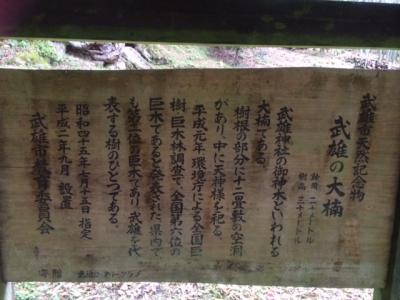 武雄市天然記念物
武雄の大楠
幹周 二十メートル
樹高 三十メートル
武雄神社の御神木といわれる
大楠である。
樹根の部分に十二畳敷の空洞
があり、中に天神様を祀る。
平成元年環境庁による全国巨
樹、巨木林調査で、全国第六位の
巨木であると発表された。県内で
も第二位の巨木であり、武雄を代
表する樹のひとつである。
昭和四十五年七月十五日 指定
平成二年九月 設置
武雄市教育委員会
寄贈